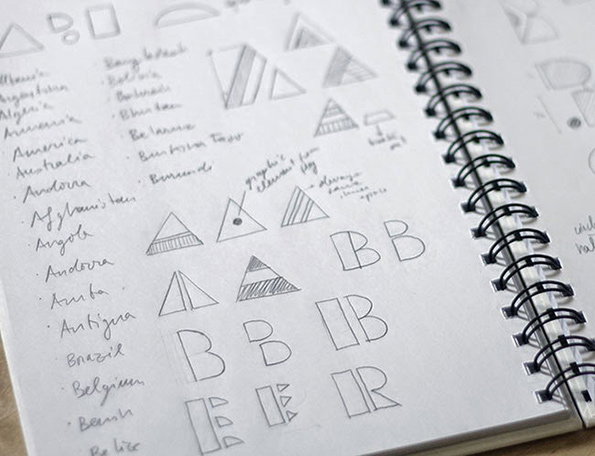 Albania
Argentina
Algeria
Armenia
America
Australia
Andorra
Afghanistan
Angola
Andorra
Antigua
Brazil
Belgium
Benin
Belize
Bangladesh
Bolivia
Bahrain
Bhutan
Belarus
Burkina Faso
Burundi
graphic
element from
flag
always
same
space
B B
B B B
E E R